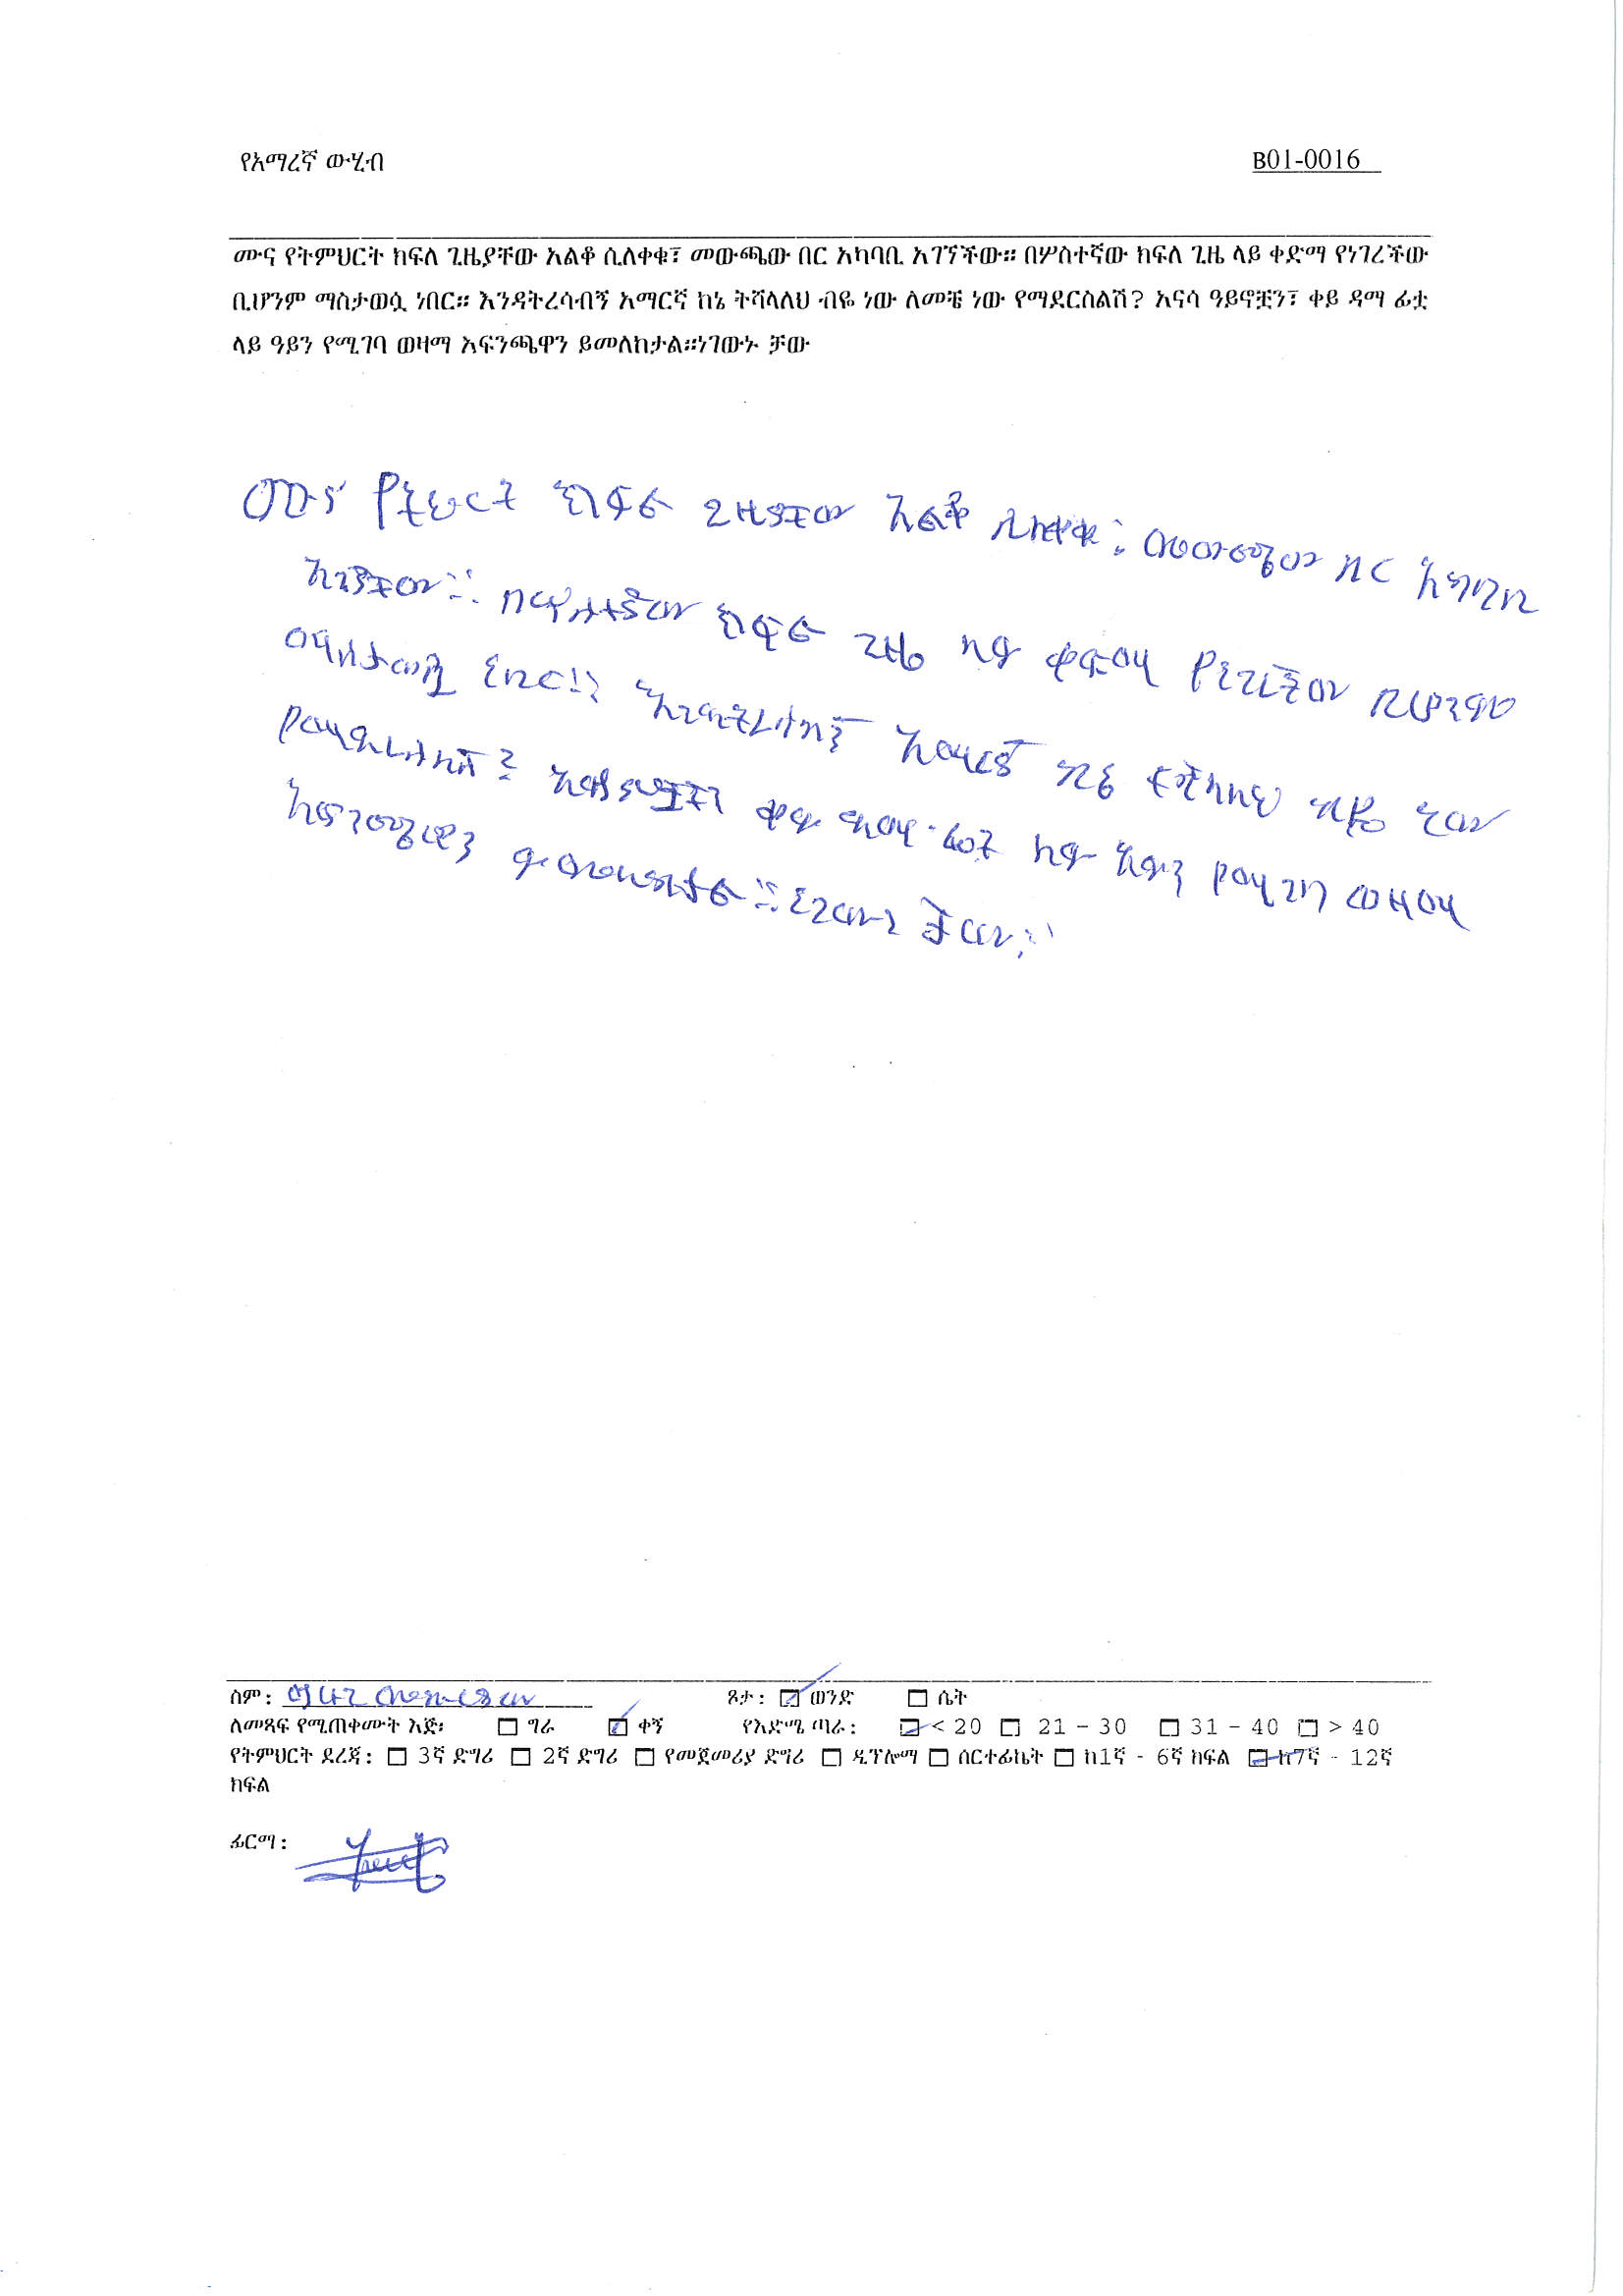 የአማረኛ ውሂብ
B01-0016
ሙና የትምህርት ክፍለ ጊዜያቸው አልቆ ሲለቀቁ፣ መውጫው በር አካባቢ አገኘችው። በሦስተኛው ክፍለ ጊዜ ላይ ቀድማ የነገረችው
ቢሆንም ማስታወሷ ነበር። እንዳትረሳብኝ አማርኛ ከኔ ትሻላለህ ብዬ ነው ለመቼ ነው የማደርስልሽ? አናሳ ዓይኖቿን፣ ቀይ ዳማ ፊቷ
ላይ ዓይን የሚገባ ወዛማ አፍንጫዋን ይመለከታል።ነገውኑ ቻው
ሙና የትህርት ክፍለ ጊዜያቸው አልቆ ሲለቀቁ፣ መውጫው በር አካባቢ
አገኘችው። በሦስተኛው ክፍለ ጊዜ ላይ ቀድማ የነገረችው ቢሆንም
ማስታወሷ ነበር። እንዳትረሳብኝ አማርኛ ከኔ ትሻላለህ ብዬ ነው
የማደርስልሽ? ቀይ ዳማ ፊቷ ላይ አይን የሚገባ ወዛማ
አፍንጫዋን ይመለከታል።ነገውኑ ቻው።
ስም: ጾታ: ወንድ ሴት
ለመጻፍ የሚጠቀሙት እጅ፡ ግራ ቀኝ የእድሜ ጣራ: < 20 21 – 30 31 – 40 > 40
የትምህርት ደረጃ: 3ኛ ድግሪ 2ኛ ድግሪ የመጀመሪያ ድግሪ ዲፕሎማ ሰርተፊኬት ከ1ኛ - 6ኛ ክፍል ከ7ኛ - 12ኛ
ክፍል
ፊርማ: